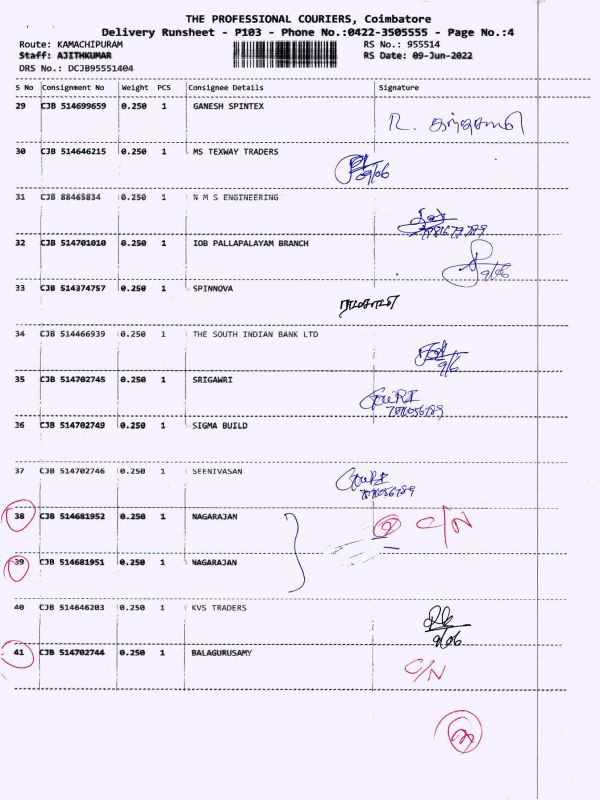 THE PROFESSIONAL COURIERS, Coimbatore
Delivery Runsheet - P103 - Phone No.:0422-3505555 - Page No.:4
Route: KAMACHIPURAM RS No.: 955514
Staff: AJITHKUMAR RS Date: 09-Jun-2022
DRS No.: DCJB95551404
S No Consignment No Weight PCS Consignee Details Signature
29 CJB 514699659 0.250 1 GANESH SPINTEX
30 CJB 514646215 0.250 1 MS TEXWAY TRADERS
09/06
31 CJB 88465834 0.250 1 N M S ENGINEERING
32 CJB 514701010 0.250 1 IOB PALLAPALAYAM BRANCH
9/06
33 CJB 514374757 0.250 1 SPINNOVA
34 CJB 514466939 0.250 1 THE SOUTH INDIAN BANK LTD
9/6
35 CJB 514702745 0.250 1 SRIGAWRI
GOURI
36 CJB 514702749 0.250 1 SIGMA BUILD
37 CJB 514702746 0.250 1 SEENIVASAN
GOURI
38 CJB 514681952 0.250 1 NAGARAJAN C/N
39 CJB 514681951 0.250 1 NAGARAJAN
40 CJB 514646203 0.250 1 KVS TRADERS
9/06
41 CJB 514702744 0.250 1 BALAGURUSAMY
C/N